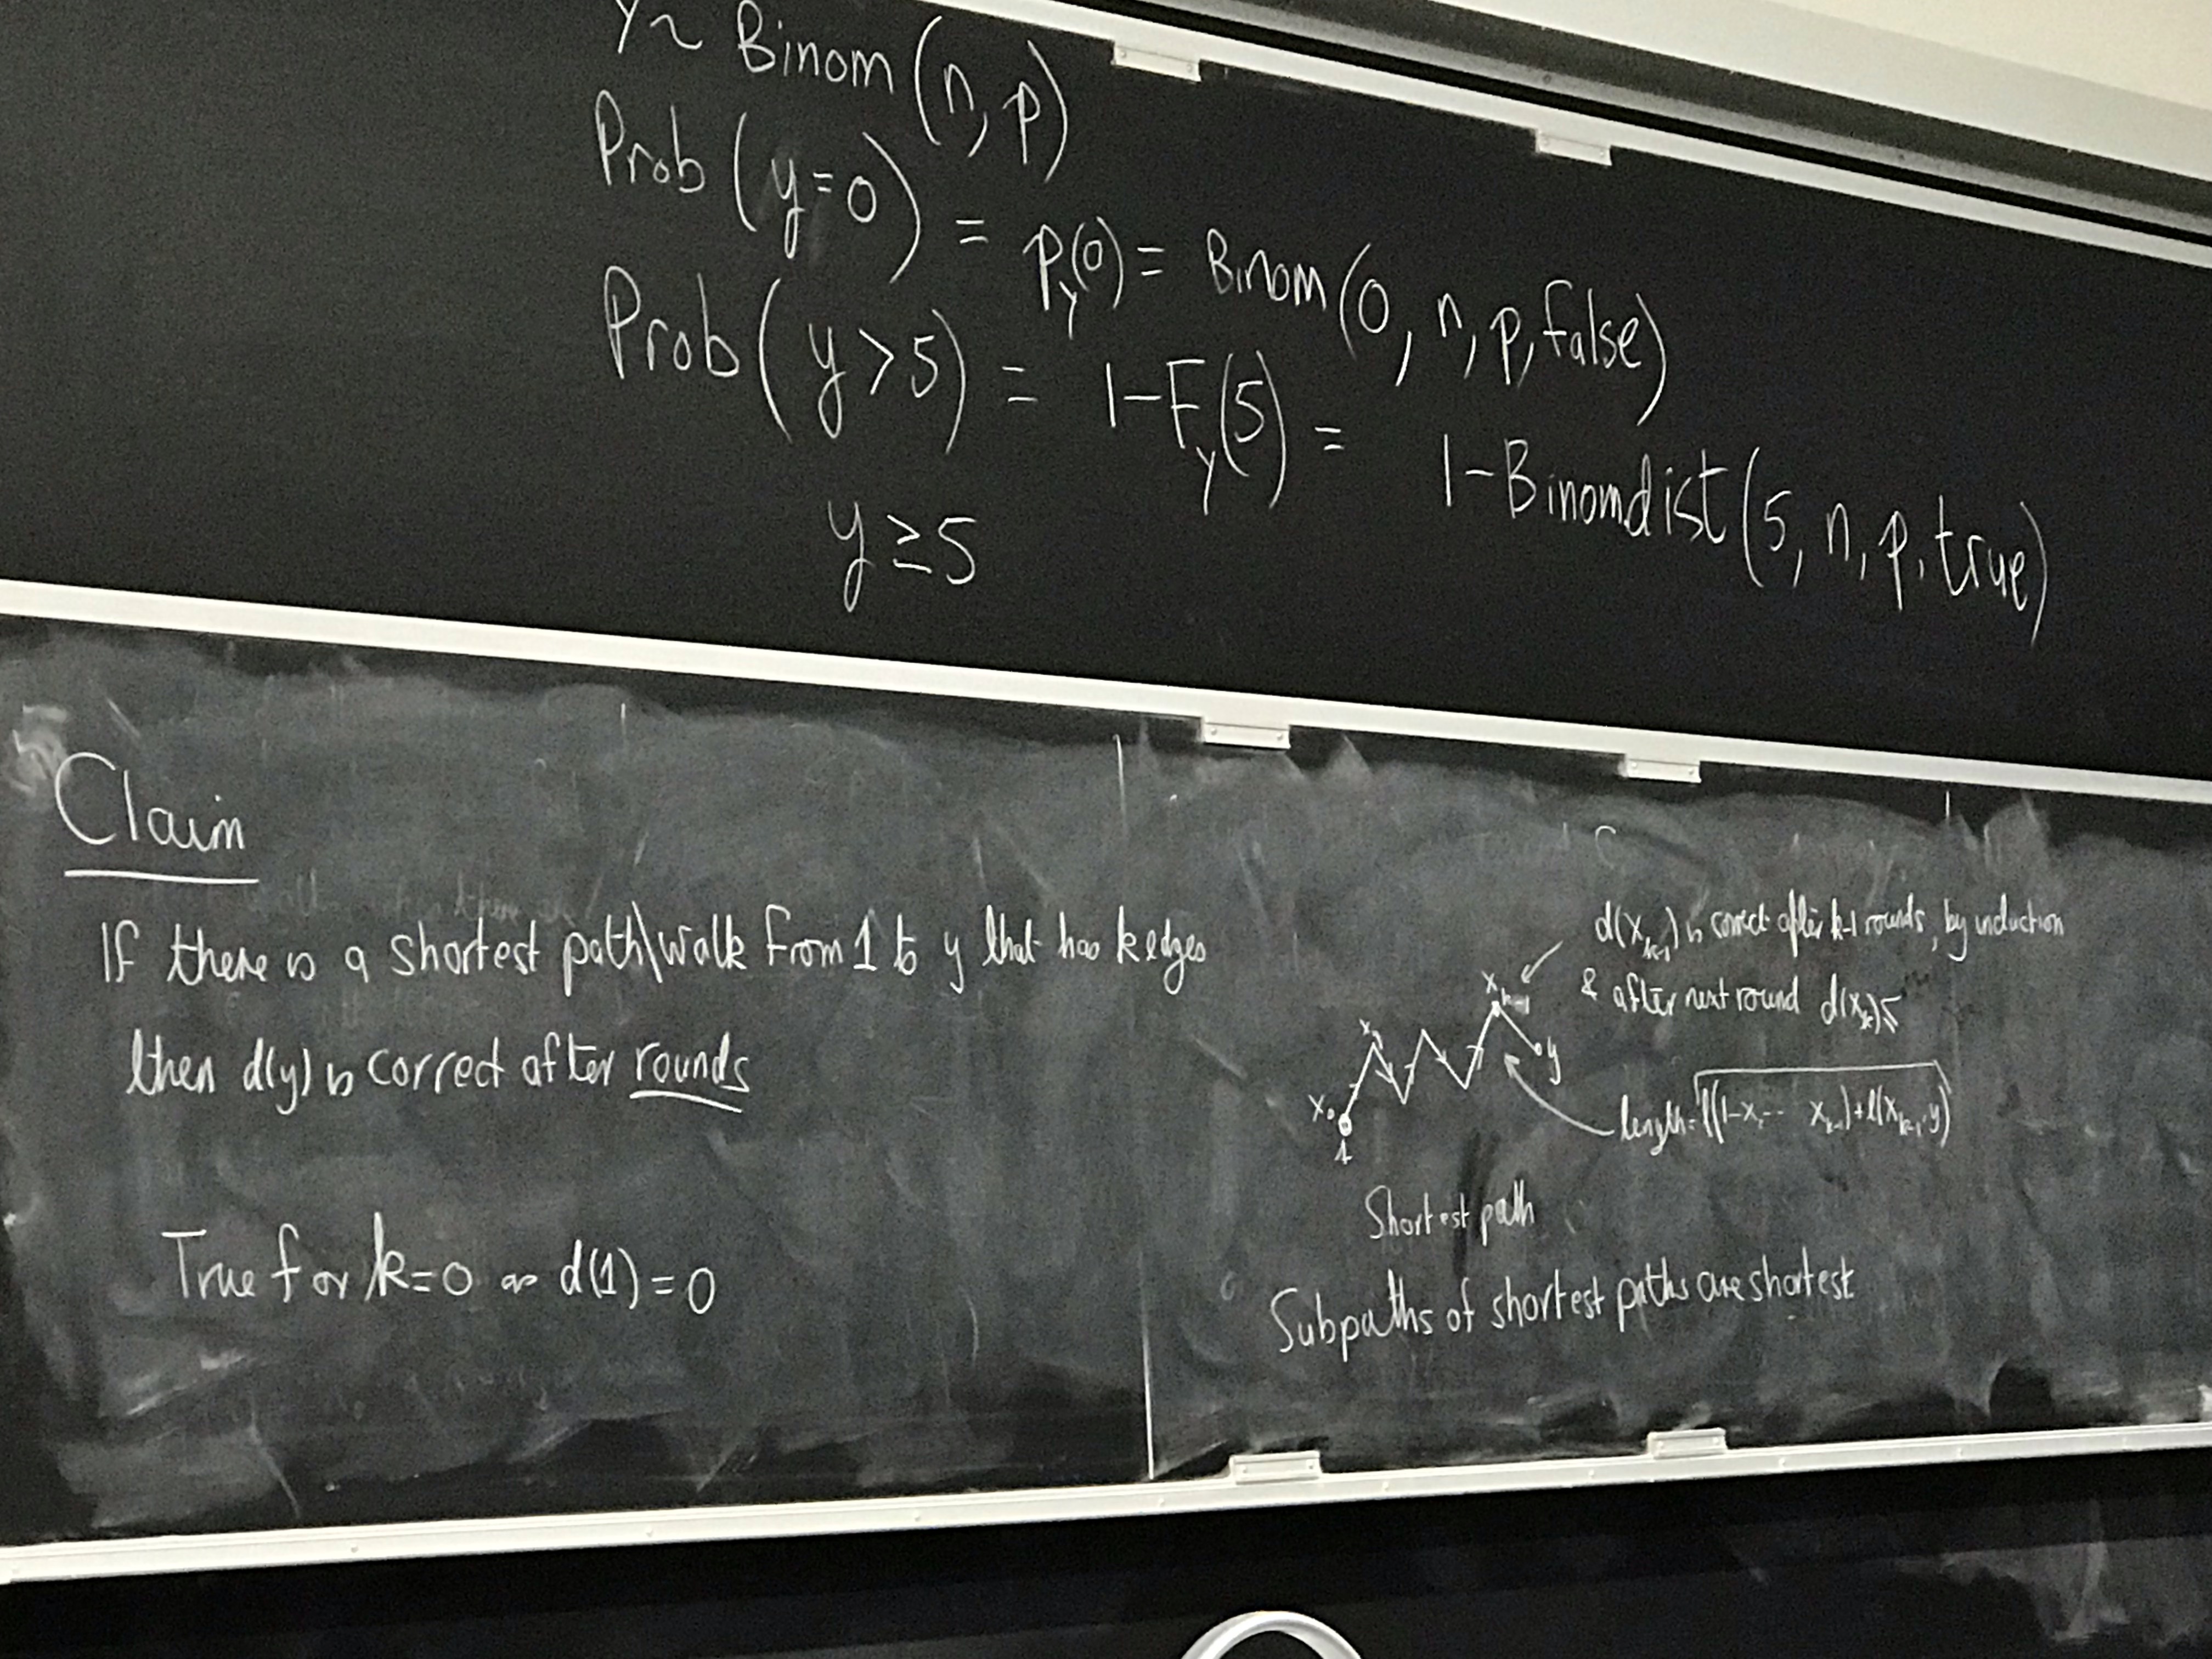 Y ~ Binom (n, p)
Prob (y=0) = p_Y(0) = Binom (0, n, p, false)
Prob (y > 5) = 1-F_Y(5) = 1-Binomdist (5, n, p, true)
y ≥ 5
Claim
If there is a shortest path\walk from 1 to y that has k edges
then d(y) is correct after rounds
True for k=0 as d(1) = 0
d(x_{k-1}) is correct after k-1 rounds, by induction
& after next round d(x_k) ≤
x_{k-1}
x_1
y
x_0
1
length = l(1-x_1-- x_{k-1}) + l(x_{k-1}, y)
Shortest path
Subpaths of shortest paths are shortest